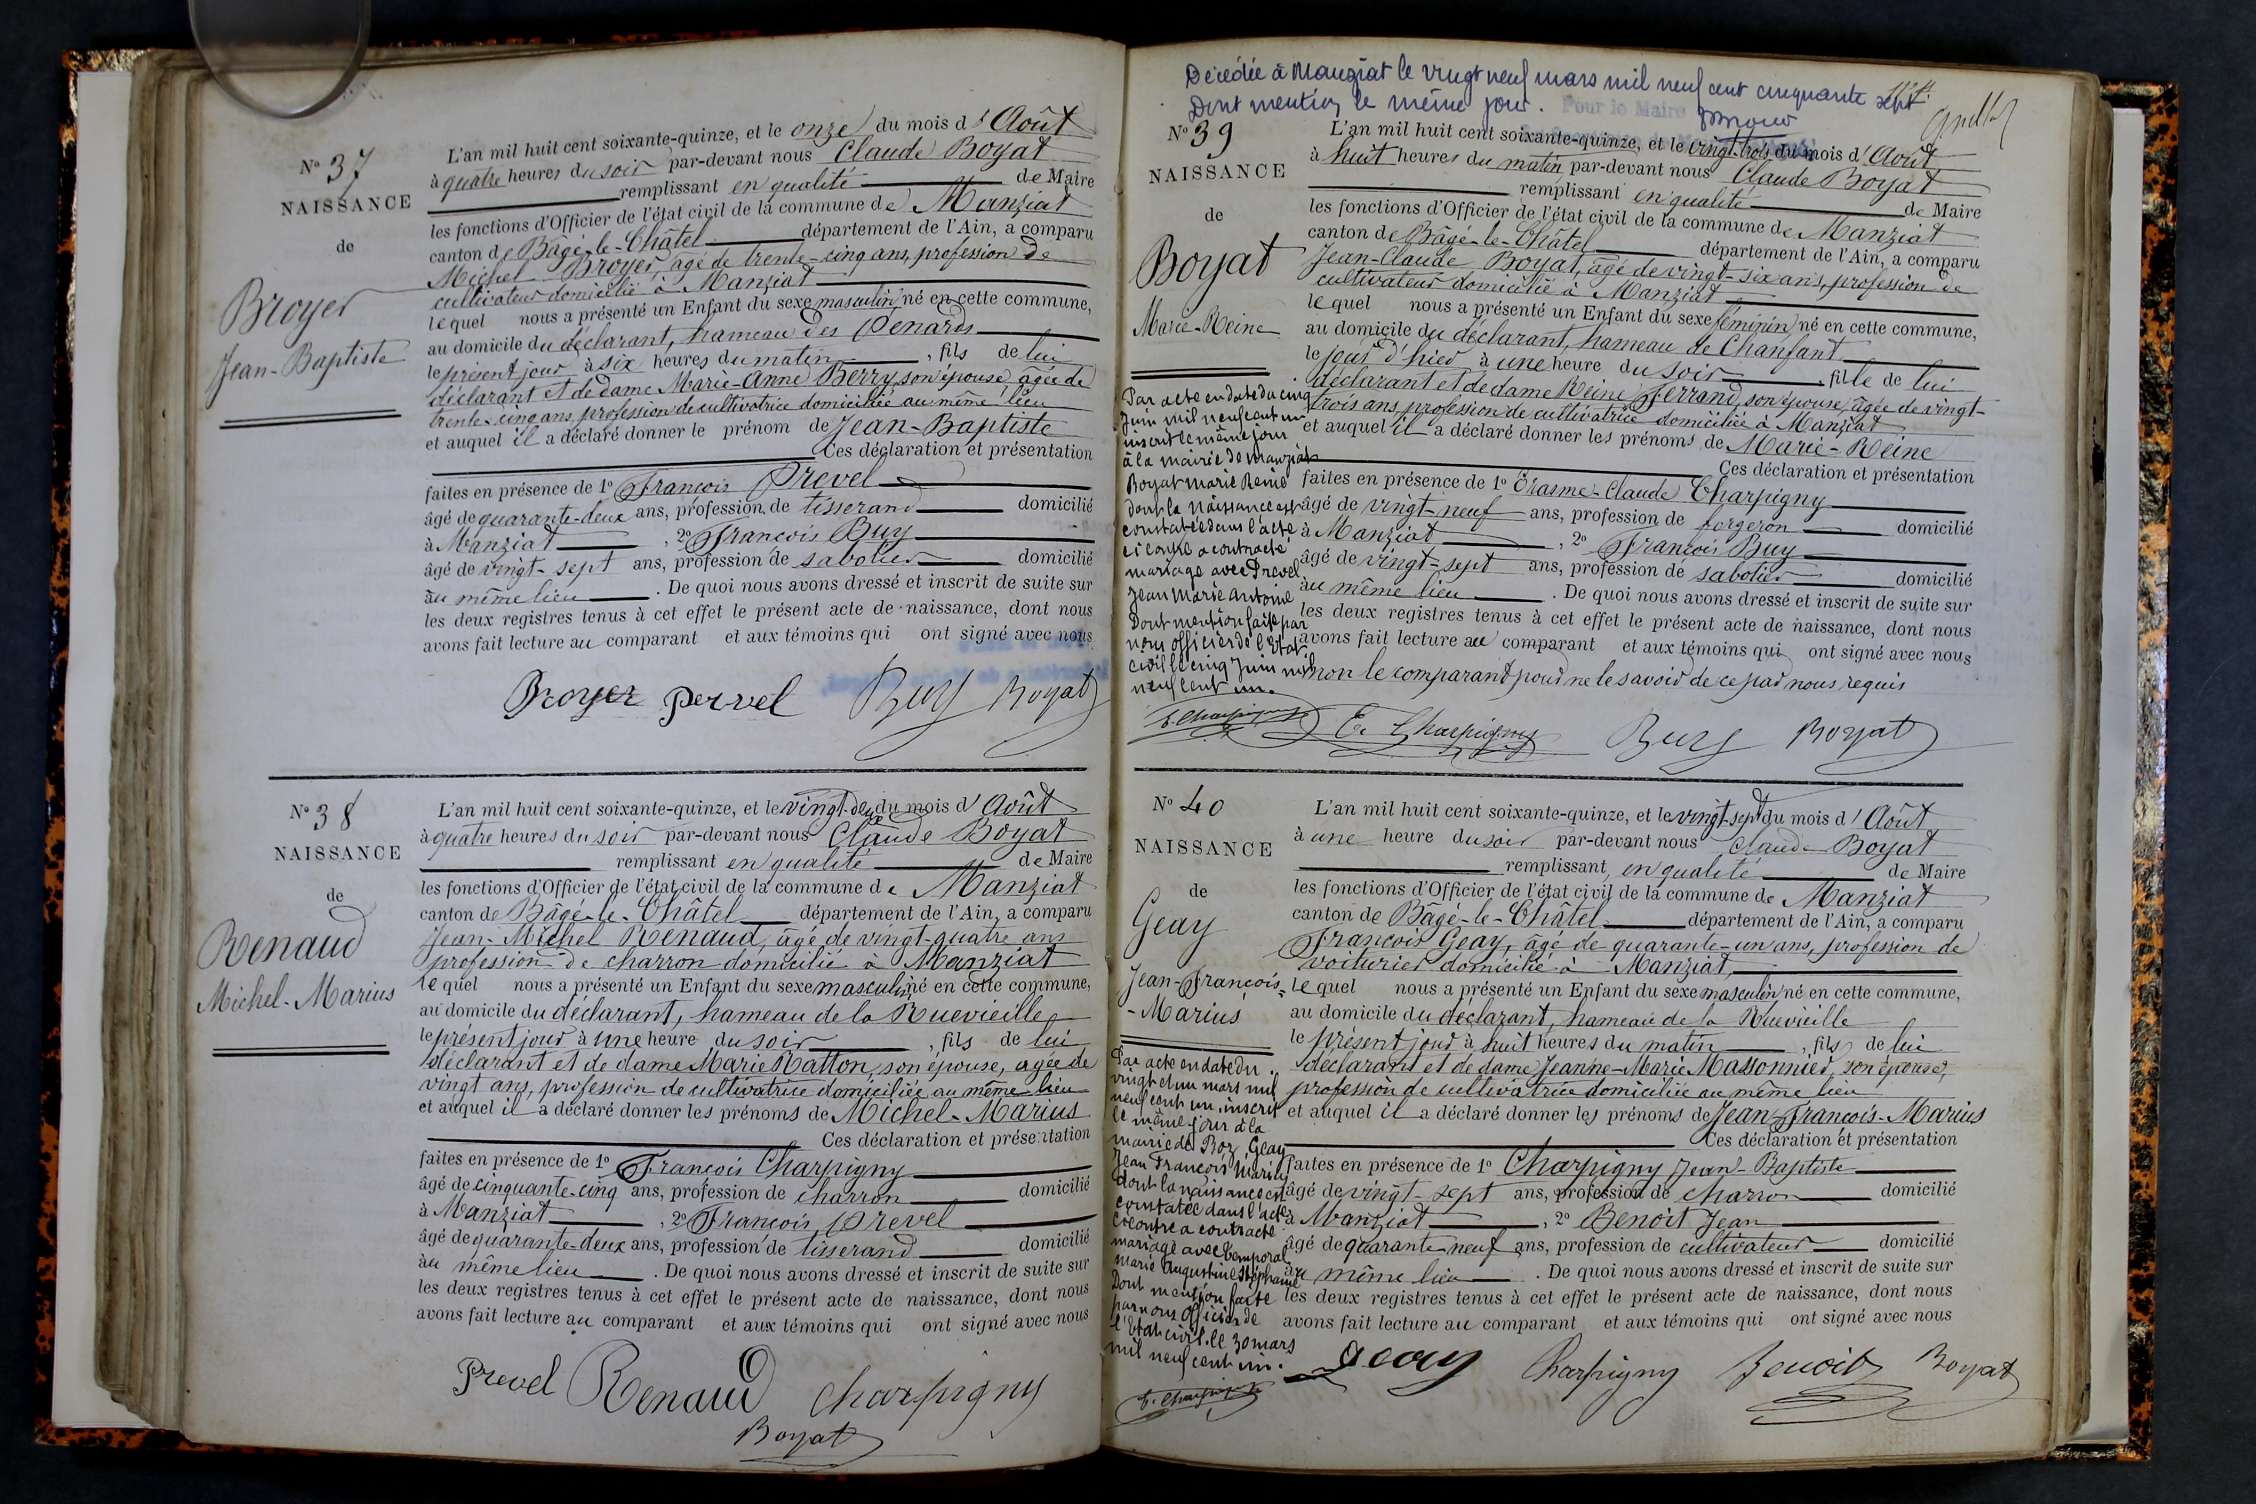 N° 37
NAISSANCE
de
Broyer
Jean-Baptiste
L'an mil huit cent soixante-quinze, et le onze du mois d'Août
à quatre heures du soir par-devant nous Claude Boyat
remplissant en qualité de Maire
les fonctions d'Officier de l'état civil de la commune de Manziat
canton de Bâgé-le-Châtel département de l'Ain, a comparu
Michel Broyer, âgé de trente-cinq ans, profession de
cultivateur domicilié à Manziat
lequel nous a présenté un Enfant du sexe masculin né en cette commune,
au domicile du déclarant, hameau des Penards
le présent jour à six heures du matin, fils de lui
déclarant et de dame Marie-Anne Berry, son épouse, âgée de
trente-cinq ans, profession de cultivatrice domiciliée au même lieu
et auquel il a déclaré donner le prénom de Jean-Baptiste
Ces déclaration et présentation
faites en présence de 1° François Prevel
âgé de quarante-deux ans, profession de tisserand domicilié
à Manziat, 2° François Buy
âgé de vingt-sept ans, profession de sabotier domicilié
au même lieu. De quoi nous avons dressé et inscrit de suite sur
les deux registres tenus à cet effet le présent acte de naissance, dont nous
avons fait lecture au comparant et aux témoins qui ont signé avec nous
Broyer Pervel Buy Boyat
N° 38
NAISSANCE
de
Renaud
Michel-Marius
L'an mil huit cent soixante-quinze, et le vingt-deux du mois d'Août
à quatre heures du soir par-devant nous Claude Boyat
remplissant en qualité de Maire
les fonctions d'Officier de l'état civil de la commune de Manziat
canton de Bâgé-le-Châtel département de l'Ain, a comparu
Jean-Michel Renaud, âgé de vingt-quatre ans
profession de charron domicilié à Manziat
lequel nous a présenté un Enfant du sexe masculin né en cette commune,
au domicile du déclarant, hameau de la Ruevieille
le présent jour à une heure du soir, fils de lui
déclarant et de dame Marie Ratton, son épouse, agée de
vingt ans, profession de cultivatrice domiciliée au même lieu
et auquel il a déclaré donner les prénoms de Michel-Marius
Ces déclaration et présentation
faites en présence de 1° François Charpigny
âgé de cinquante-cinq ans, profession de charron domicilié
à Manziat, 2° François Prevel
âgé de quarante-deux ans, profession de tisserand domicilié
au même lieu. De quoi nous avons dressé et inscrit de suite sur
les deux registres tenus à cet effet le présent acte de naissance, dont nous
avons fait lecture au comparant et aux témoins qui ont signé avec nous
Prevel Renaud Charpigny
Boyat
Décédée à Manziat le vingt neuf mars mil neuf cent cinquante sept
Dont mention le même jour. Pour le Maire
N° 39
NAISSANCE
de
Boyat
Marie-Reine
Par acte en date du cinq
Juin mil neuf cent un
inscrit le même jour
à la mairie de Manziat
Boyat Marie Reine
dont la naissance est
constatée dans l'acte
ci contre a contracté
mariage avec Prevel
Jean Marie Antoine
Dont mention faite par
nous officier de l'Etat
civil le cinq Juin mil
neuf cent un.
E. Charpigny
L'an mil huit cent soixante-quinze, et le vingt-trois du mois d'Août
à huit heures du matin par-devant nous Claude Boyat
remplissant en qualité de Maire
les fonctions d'Officier de l'état civil de la commune de Manziat
canton de Bâgé-le-Châtel département de l'Ain, a comparu
Jean-Claude Boyat, âgé de vingt-six ans, profession de
cultivateur domicilié à Manziat
lequel nous a présenté un Enfant du sexe féminin né en cette commune,
au domicile du déclarant, hameau de Chanfant
le jour d'hier à une heure du soir, fille de lui
déclarant et de dame Reine Ferrand, son épouse, âgée de vingt-
trois ans, profession de cultivatrice domiciliée à Manziat
et auquel il a déclaré donner les prénoms de Marie-Reine
Ces déclaration et présentation
faites en présence de 1° Erasme-Claude Charpigny
âgé de vingt-neuf ans, profession de forgeron domicilié
à Manziat, 2° François Buy
âgé de vingt-sept ans, profession de sabotier domicilié
au même lieu. De quoi nous avons dressé et inscrit de suite sur
les deux registres tenus à cet effet le présent acte de naissance, dont nous
avons fait lecture au comparant et aux témoins qui ont signé avec nous
non le comparant pour ne le savoir de ce par nous requis
E. Charpigny Buy Boyat
N° 40
NAISSANCE
de
Geay
Jean-François-
-Marius
Par acte en date du
vingt et un mars mil
neuf cent un, inscrit
le même jour à la
mairie de Boz, Geay
Jean François Marius
dont la naissance est
constatée dans l'acte
ci contre a contracté
mariage avec Temporal
Marie Augustine Stéphanie
Dont mention faite
par nous officier de
l'Etat civil le 30 mars
mil neuf cent un.
E. Charpigny
L'an mil huit cent soixante-quinze, et le vingt-sept du mois d'Août
à une heure du soir par-devant nous Claude Boyat
remplissant en qualité de Maire
les fonctions d'Officier de l'état civil de la commune de Manziat
canton de Bâgé-le-Châtel département de l'Ain, a comparu
François Geay, âgé de quarante-un ans, profession de
voiturier domicilié à Manziat
lequel nous a présenté un Enfant du sexe masculin né en cette commune,
au domicile du déclarant, hameau de la Ruevieille
le présent jour à huit heures du matin, fils de lui
déclarant et de dame Jeanne-Marie Massonnier, son épouse,
profession de cultivatrice domiciliée au même lieu
et auquel il a déclaré donner les prénoms de Jean-François-Marius
Ces déclaration et présentation
faites en présence de 1° Charpigny Jean-Baptiste
âgé de vingt-sept ans, profession de charron domicilié
à Manziat, 2° Benoit Jean
âgé de quarante-neuf ans, profession de cultivateur domicilié
au même lieu. De quoi nous avons dressé et inscrit de suite sur
les deux registres tenus à cet effet le présent acte de naissance, dont nous
avons fait lecture au comparant et aux témoins qui ont signé avec nous
Geay Charpigny Benoit Boyat